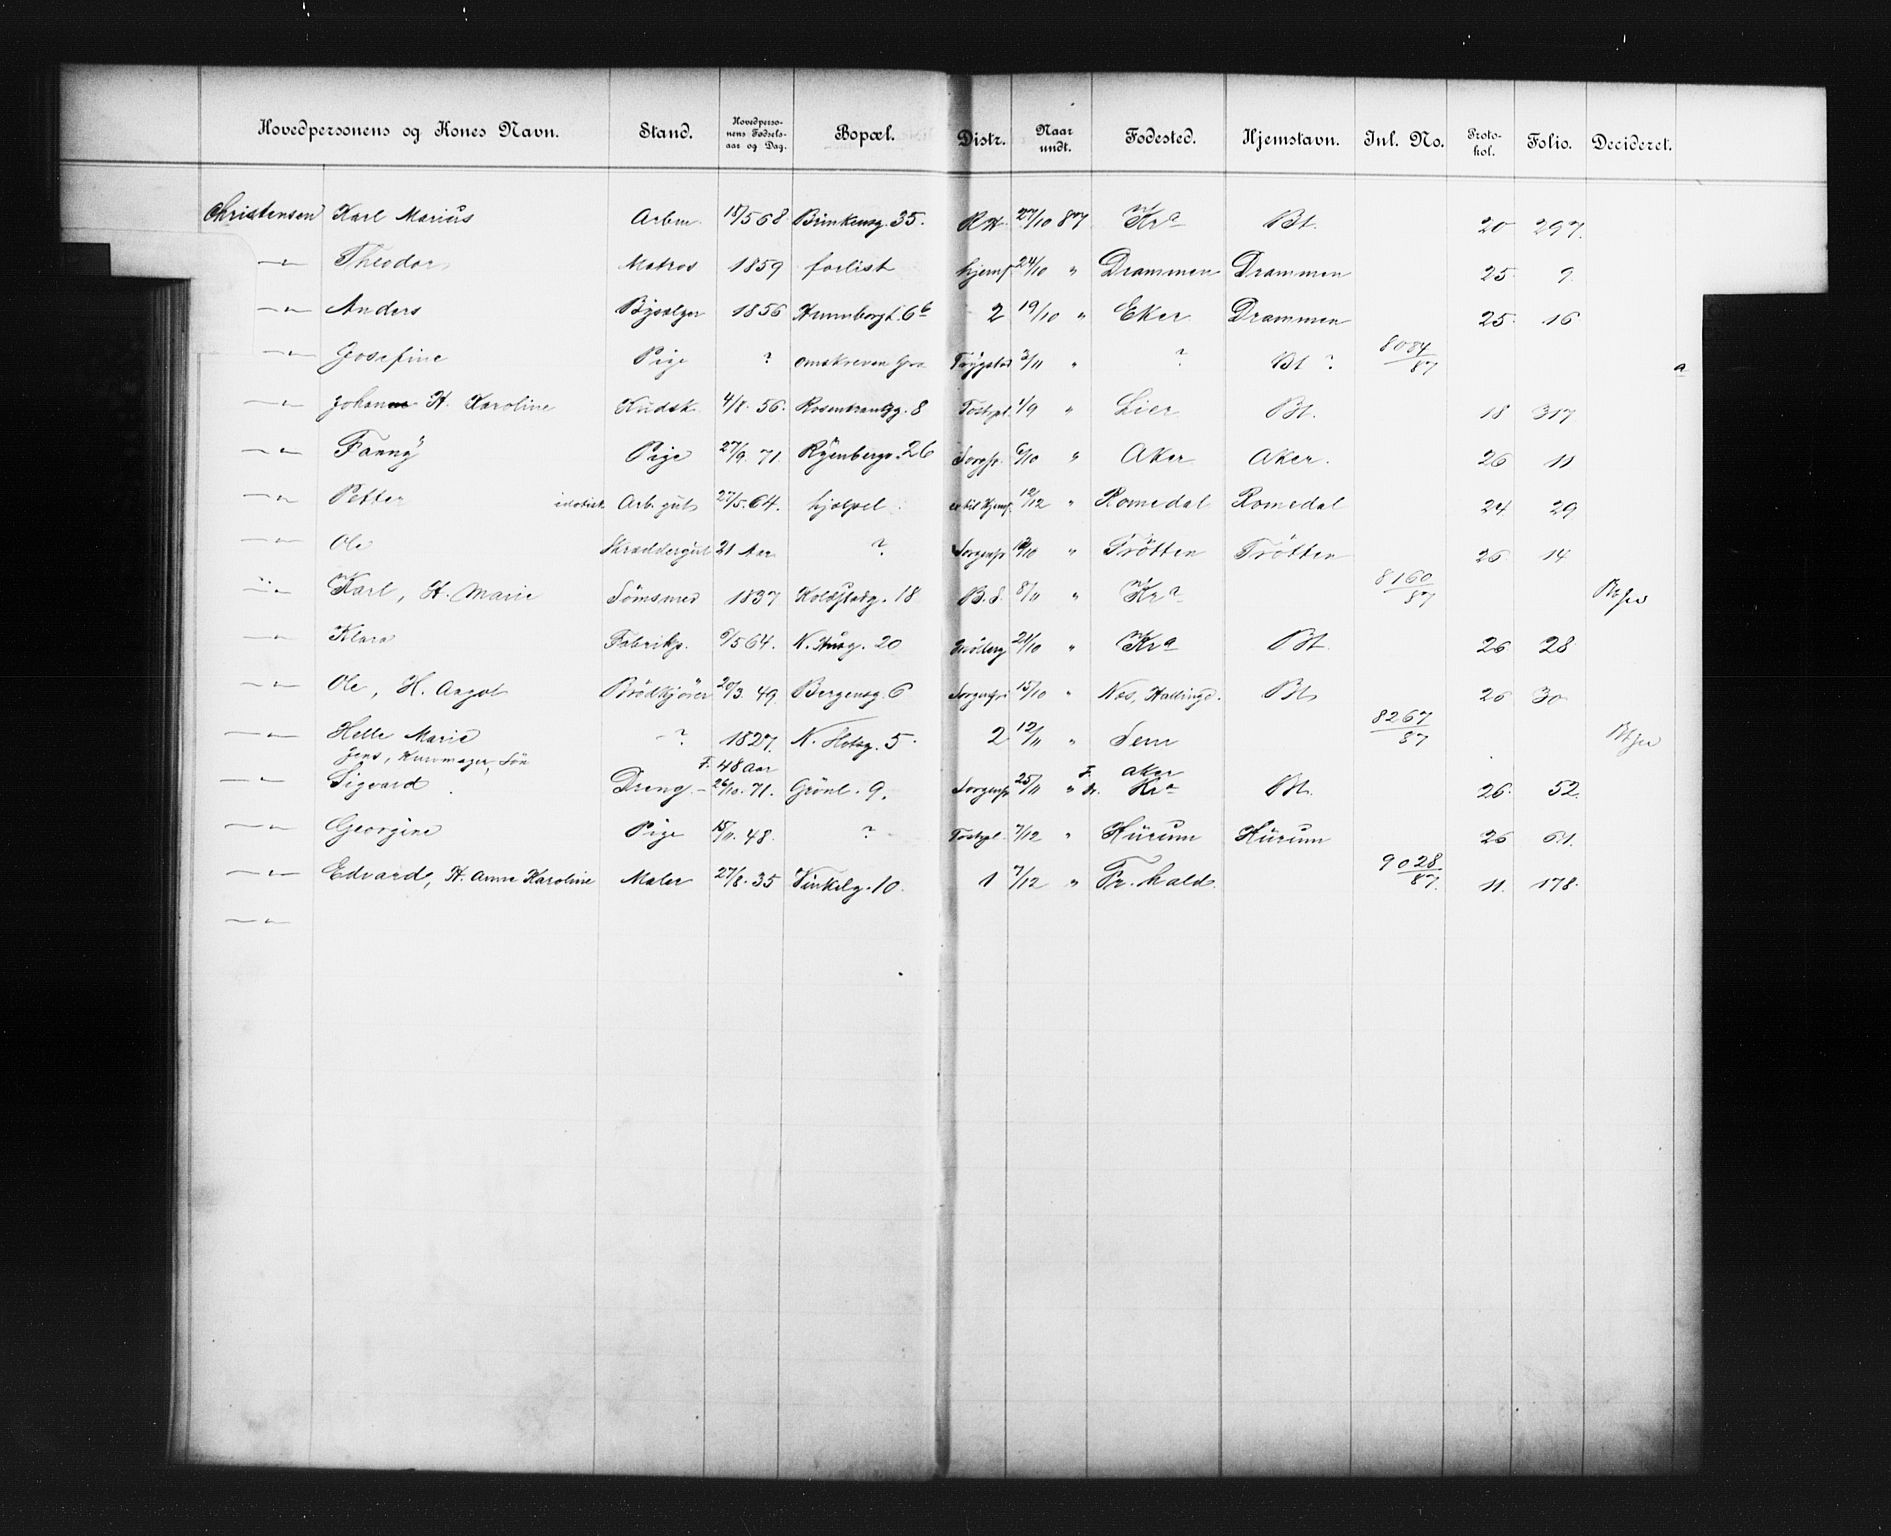 Hovedpersonens og Kones Navn. Stand. Hovedperso-nens Fødsels-aar og Dag. Bopæl. Distr. Naar undt. Fødested. Hjemstavn. Inl. No. Proto-kol. Folio. Decideret.
Christensen Karl Marius Arbm. 18/5 68 Brinkensg. 35. 27/10 87 Kra Bt. 20 297.
—"— Theodor Matros 1859 forlist hjemf. 24/10 " Drammen Drammen 25 9.
—"— Anders 1856 2 19/10 " Eker Drammen 25 16
—"— Josefine Pige ? Trygstad 3/11 " ? Bt ? 8084/87 a
—"— Johan H. Karoline Kudsk 4/8. 56. Rosenkrantzg. 8 Tostpl. 1/9 " Lier Bt. 18 317
—"— Fanny Pige 27/9. 71. Ryenbergv. 26 6/10 " Aker Aker. 26 11
—"— Petter idiotisk Arb. gut 27/5. 64. hjælpel. 12/12 " Romedal Romedal 24 29
—"— Ole Skræddergut 21 Aar ? Sorgenfr /10 " Trötten Trötten 26 14
—"— Karl, H. Marie Tömsmed 1837 18 B. S. 8/11 " Kra 8160/87
—"— Klara Fabrikp. 6/5 64. N. 20 21/10 " Kra Bt 26 28
—"— Ole, H. Aagot Brödkjörer 20/3 49 Bergensg. 6 Sorgenfri 15/10 " Nes, Hallingd. Bt 26 30
—"— Helle Marie ? 1827. N. 5. 2 12/11 " Sem 8267/87
Jens, Kurvmager, Sön F. 48 Aar F. Aker
—"— Sigvard Dreng – 26/10. 71. Grönl. 9. Sorgenfr 25/11 " Kra Bt. 26. 52.
—"— Georgine Pige 15/11. 48. ? Tostpl. 7/12 " Hurum Hurum 26 61.
—"— Edvard, H. Anne Karoline Maler 27/8. 35 Vinkelg. 10. 1 7/12 " Fr. hald 9028/87. 11. 178.
—"—